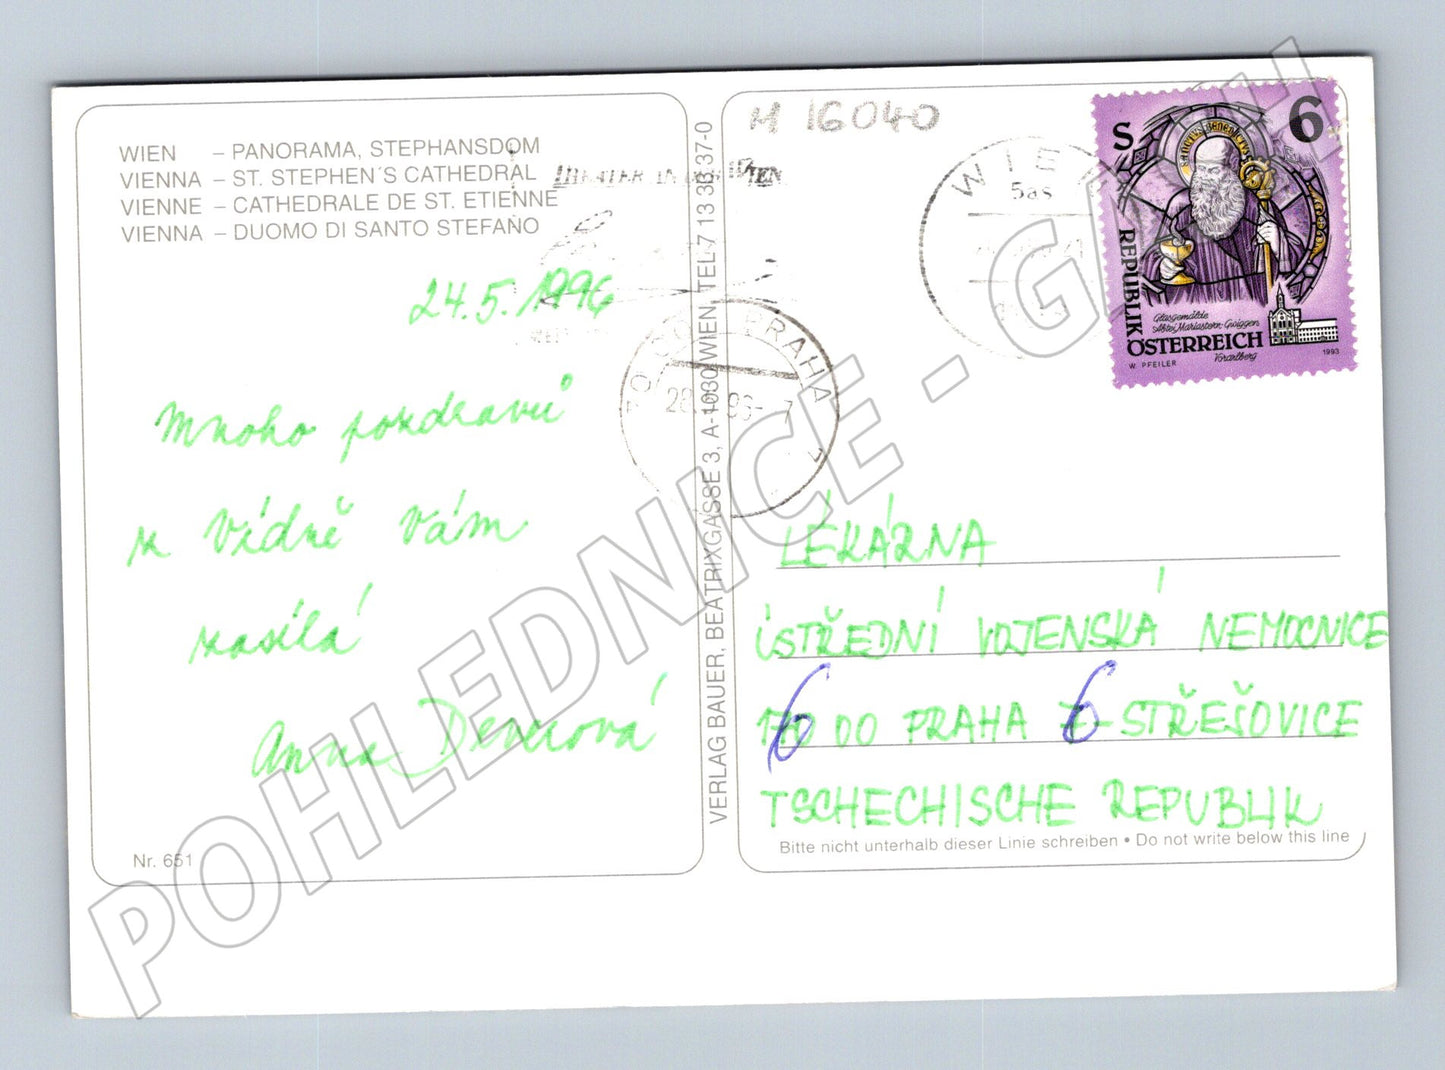 WIEN – PANORAMA, STEPHANSDOM
VIENNA – ST. STEPHEN´S CATHEDRAL
VIENNE – CATHEDRALE DE ST. ETIENNE
VIENNA – DUOMO DI SANTO STEFANO
24.5.1996
Mnoho pozdravů
z Vídně Vám
zasílá
Anna
Nr. 651
VERLAG BAUER, BEATRIXGASSE 3, A-1030 WIEN, TEL 7 13 38 37-0
M 16040
THEATER AN DER WIEN
WIE
5as
PRAHA
28. 96-7
S 6
SANCTUS BENEDICTUS
REPUBLIK
ÖSTERREICH
Glasgemälde
Abtei Mariastern-Gwiggen
Vorarlberg
W. PFEILER
1993
LÉKÁRNA
ÚSTŘEDNÍ VOJENSKÁ NEMOCNICE
DO PRAHA 6-STŘEŠOVICE
TSCHECHISCHE REPUBLIK
Bitte nicht unterhalb dieser Linie schreiben • Do not write below this line
POHLEDNICE - GALANTH